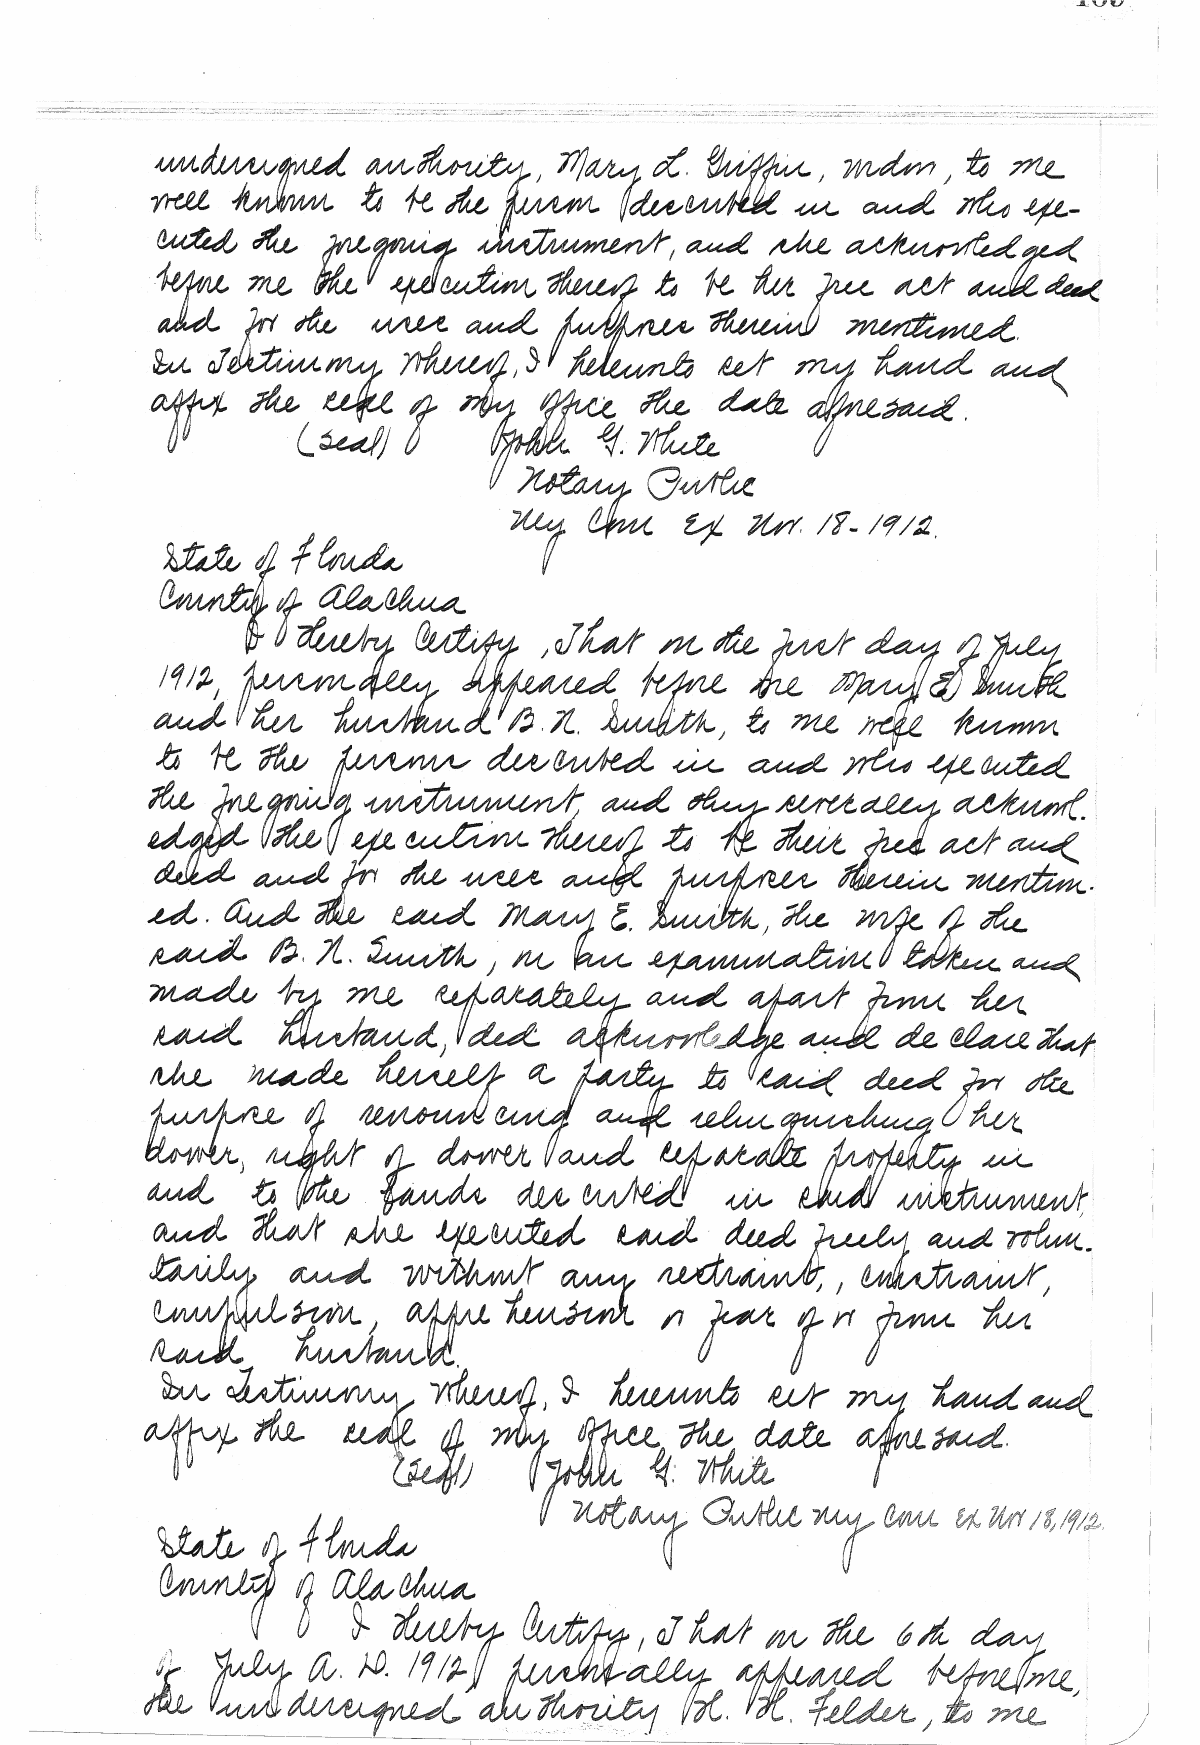 undersigned authority, Mary L. Griffin, widow, to me
well known to be the person described in and who exe-
cuted the foregoing instrument, and she acknowledged
before me the execution thereof to be her free act and deed
and for the uses and purposes therein mentioned.
In Testimony Whereof, I hereunto set my hand and
affix the seal of my office the date aforesaid.
(Seal) John G. White
Notary Public
My Com Ex Nov. 18-1912.
State of Florida
County of Alachua
I Hereby Certify, That on the first day of July
1912, personally appeared before me Mary E. Smith
and her husband B. N. Smith, to me well known
to be the persons described in and who executed
the foregoing instrument, and they severally acknowl-
edged the execution thereof to be their free act and
deed and for the uses and purposes therein mention-
ed. And the said Mary E. Smith, the wife of the
said B. N. Smith, on an examination taken and
made by me separately and apart from her
said husband, did acknowledge and declare that
she made herself a party to said deed for the
purpose of renouncing and relinquishing her
dower, right of dower and separate property in
and to the lands described in said instrument,
and that she executed said deed freely and volun-
tarily and without any restraint, , constraint,
compulsion, apprehension or fear of or from her
said husband.
In Testimony Whereof, I hereunto set my hand and
affix the seal of my office the date aforesaid.
(Seal) John G. White
Notary Public My Com Ex Nov 18, 1912.
State of Florida
County of Alachua
I Hereby Certify, That on the 6th day
of July A. D. 1912, personally appeared before me,
the undersigned authority H. H. Felder, to me